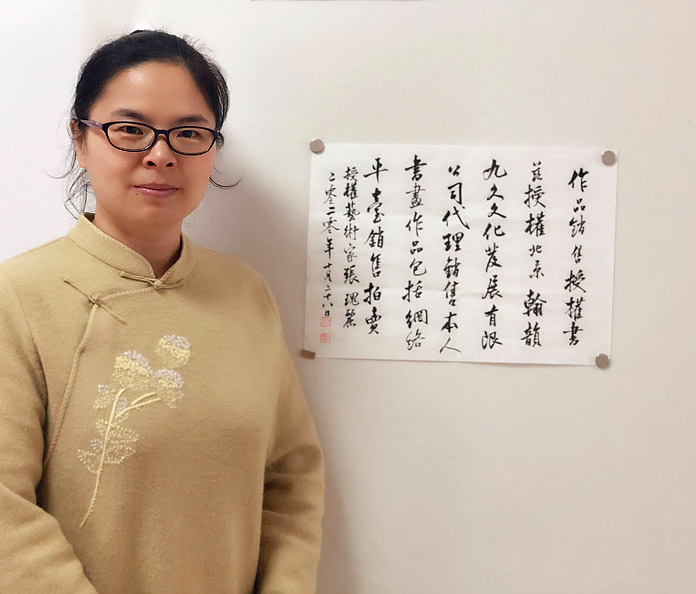 作品銷售授權書
茲授權北京翰韻
九久文化發展有限
公司代理銷售本人
書畫作品包括網絡
平臺銷售拍賣
授權藝術家張瑰麗
二零二零年十月二十八日